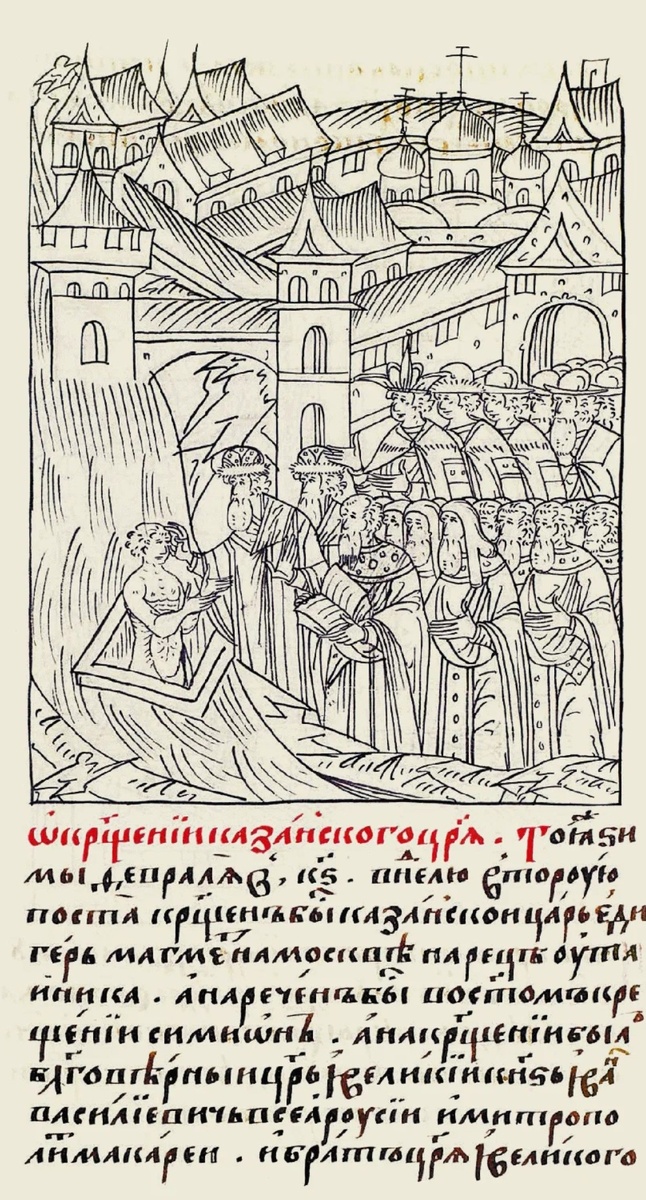 Ѡ крщ҃енїи каза́нского цр҃ѧ. Тоѧ ѕи
мы февралѧ въ, к҃ѕ. в нⷣелю вторую
поста крщ҃енъ бы каза́нскои царь еди
ге́рь магмеⷮ на москвѣ на рецѣ оу та
и́ника. а нарече́нъ бы во ст҃омъ кре
ще́нїи симиѡнъ. а на крщ҃енїи былъ
бл҃гове́рныи цр҃ь и великїи кн҃ѕь ива
василїевичь всеа̀ роусїи и митропо
ли макареи. и бра́тъ цр҃ѧ и великого